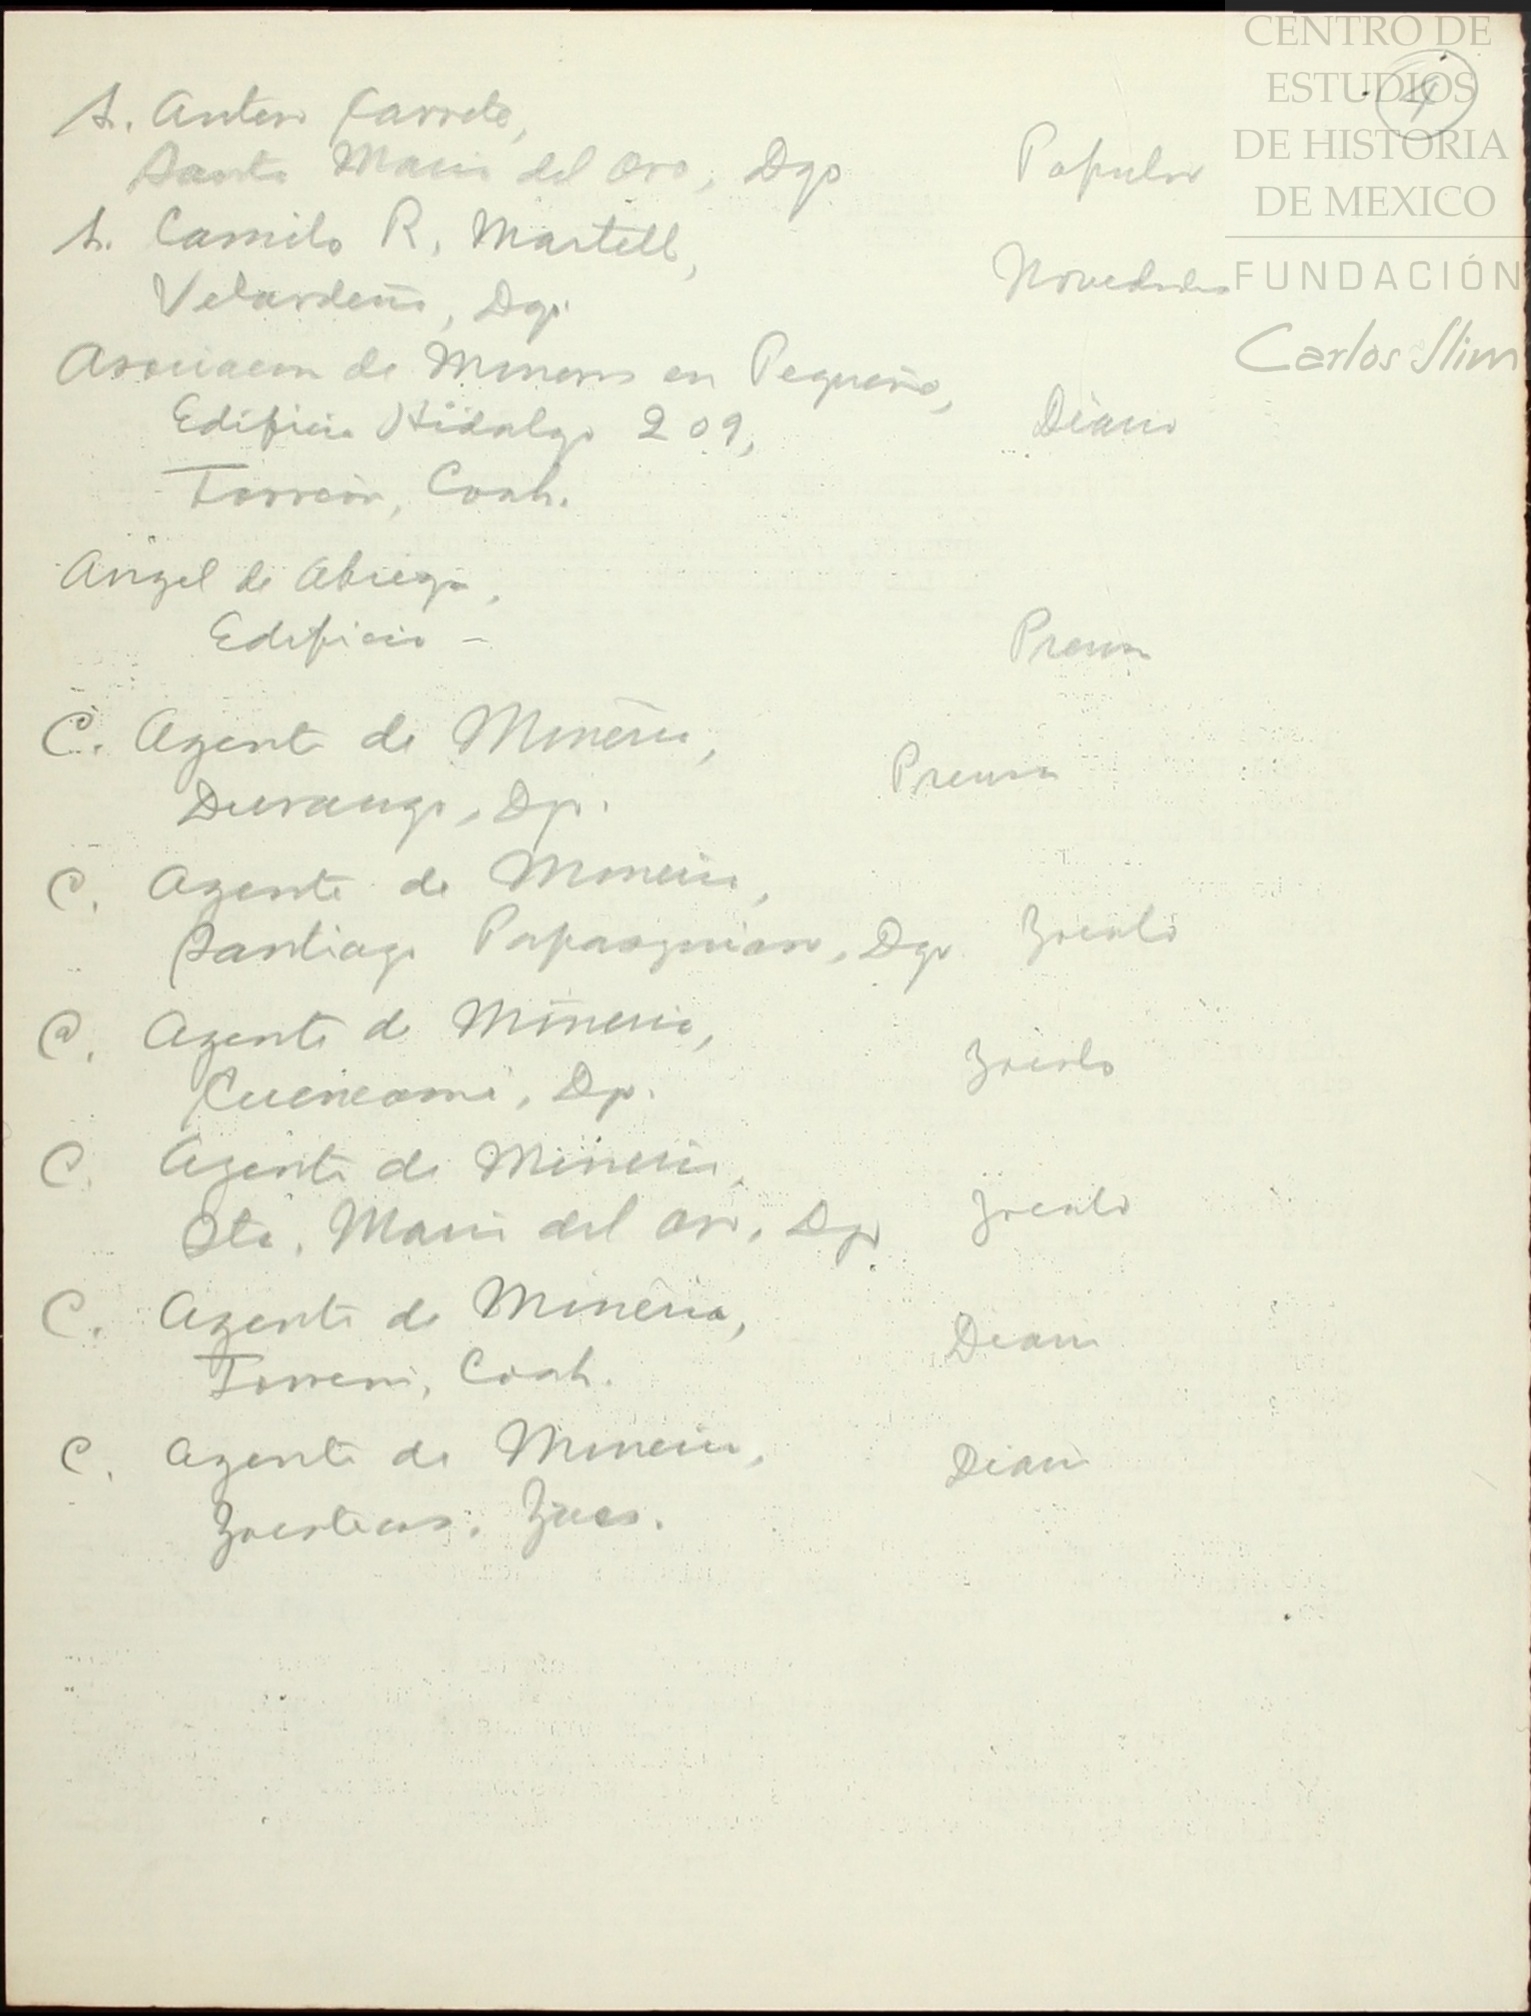 CENTRO DE
ESTUDIOS
DE HISTORIA
DE MEXICO
FUNDACIÓN
Carlos Slim
4
S. Antero
Santa Maria del Oro, Dgo Popular
S. Camilo R. Martell,
Velardeña, Dgo. Novedades
Asociacion de Mineros en Pequeño,
Edificio Hidalgo 209, Diario
Torreón, Coah.
Angel de Abiega,
Edificio - Prensa
C. Agente de Mineria,
Durango, Dgo. Prensa
C. Agente de Mineria,
Santiago Papasquiaro, Dgo Zocalo
C. Agente de Mineria,
Cuencamé, Dgo. Zocalo
C. Agente de Mineria,
Sta. Maria del Oro, Dgo Zocalo
C. Agente de Mineria,
Torreon, Coah. Diario
C. Agente de Mineria, Diario
Zacatecas, Zacs.